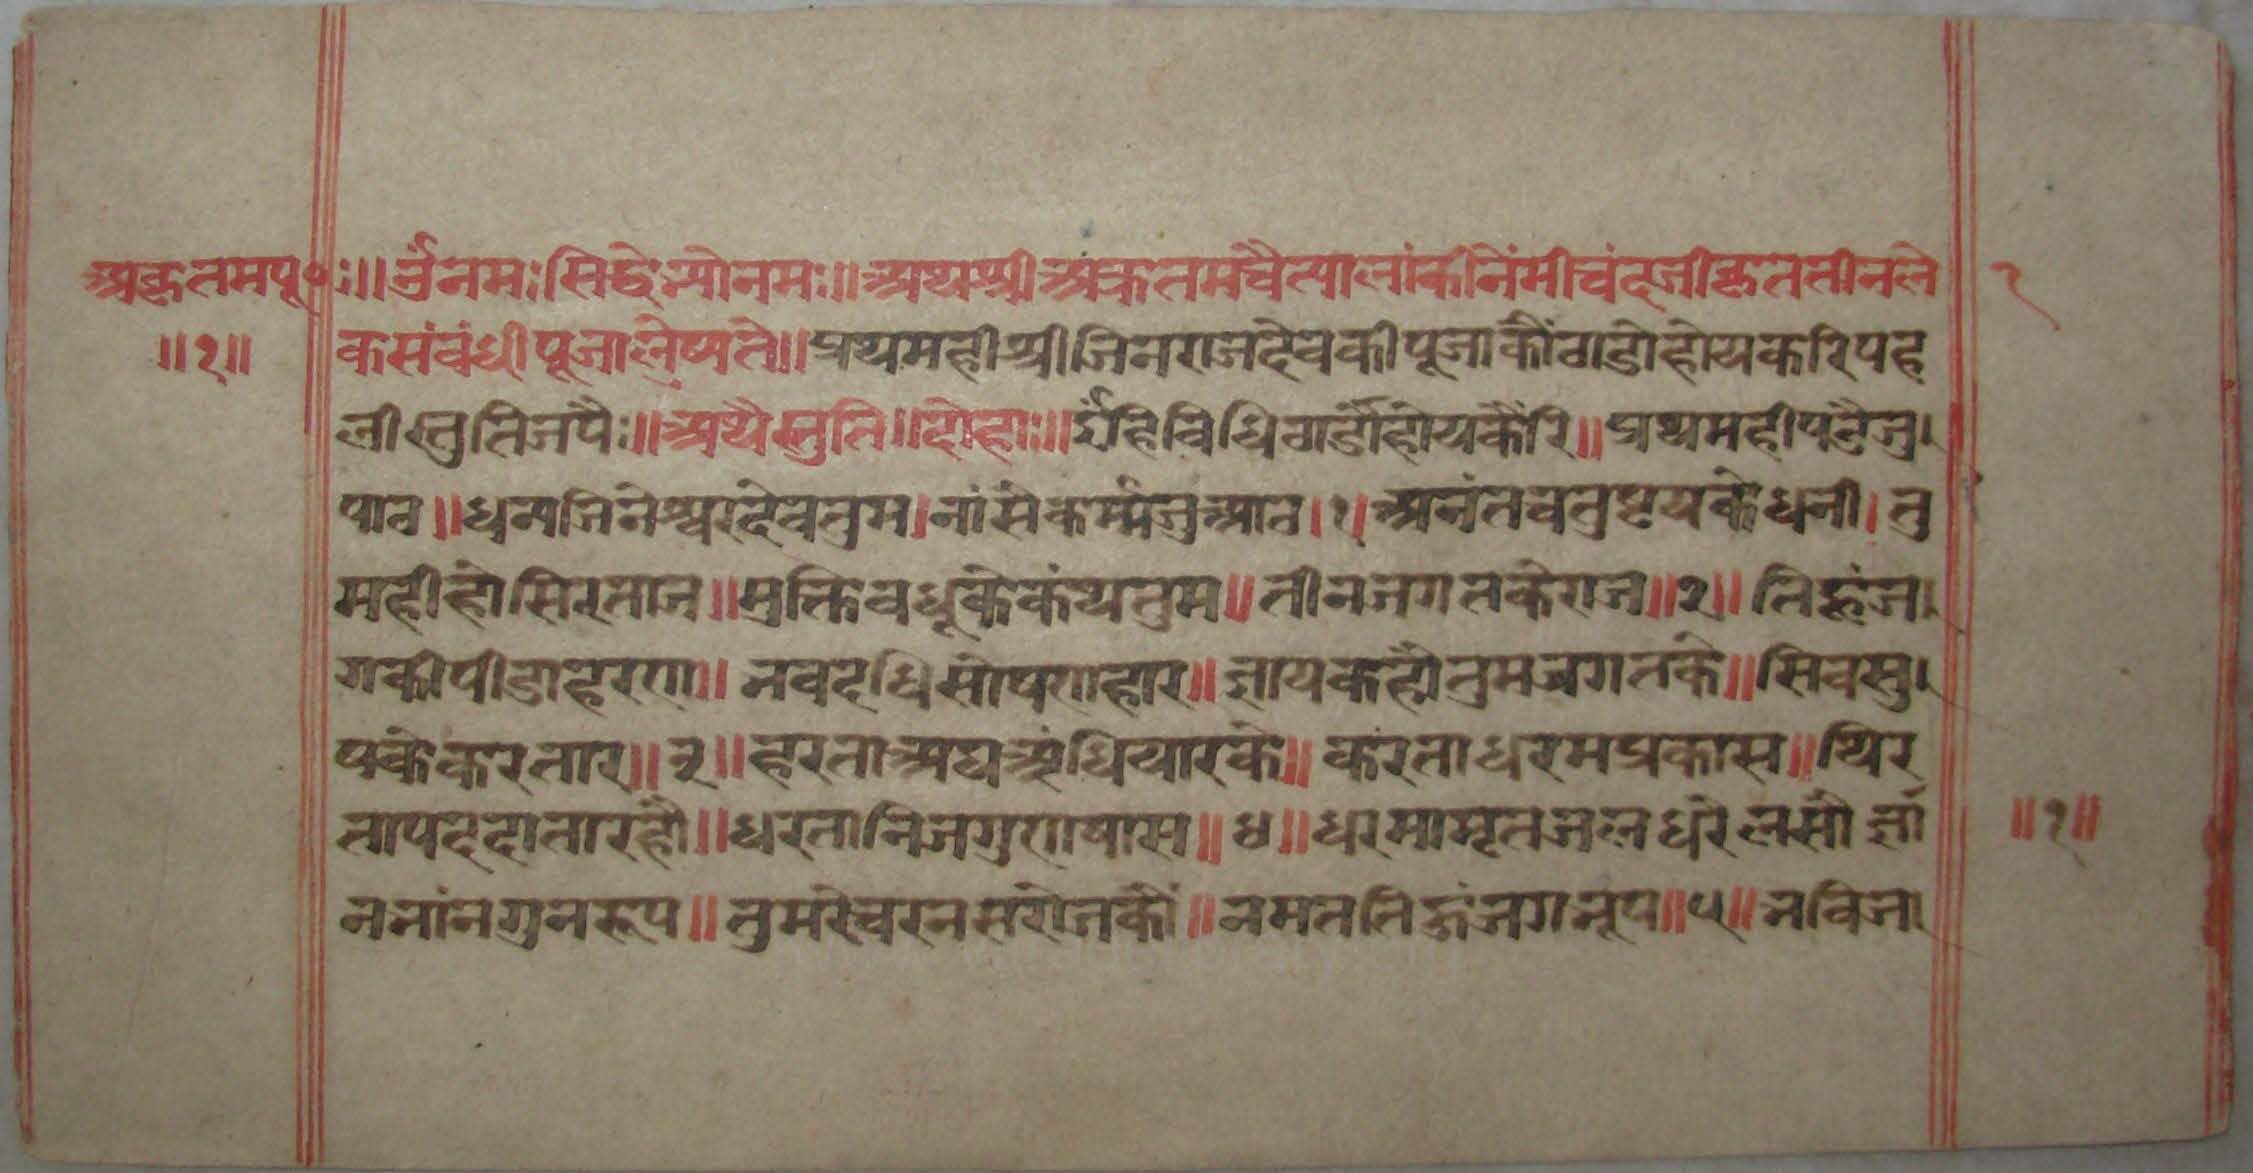 अकृतमपू०
॥१॥
॥ॐनमःसिद्धेभ्योनमः॥अथश्रीअकृतमचैत्यालांकीनेंमीचंदजीकृततीनले
कसंबंधीपूजालेष्यते॥प्रथमहीश्रीजिनराजदेवकीपूजाकौंठाडोहोयकरिपह
लीस्तुतिजपैः॥अथैस्तुति॥दोहाः॥ईहिविधिठाडौहोयकैरि॥प्रथमहीपढैजु
पाठ॥धन्यजिनेश्वरदेवतुम।नांसेकर्म्मजुआठ।१।अनंतचतुष्टयकेधनी।तु
महीहोसिरताज॥मुक्तिवधूकेकंथतुम॥तीनजगतकेराज॥२॥तिहूंज
गकीपीडाहरण॥भवदधिसोषणहार॥ज्ञायकहौतुमजगतके॥सिवसु
षकेकरतार॥३॥हरताअघअंधियारके॥करताधरमप्रकास॥थिर
तापददातारहौ॥धरतानिजगुणषास॥४॥धरमामृतजलधरेलसौज्ञां
नभांनगुनरूप॥तुमरेचरनसरोजकौं॥नमततिहूंजगभूप॥५॥भविज
॥१॥